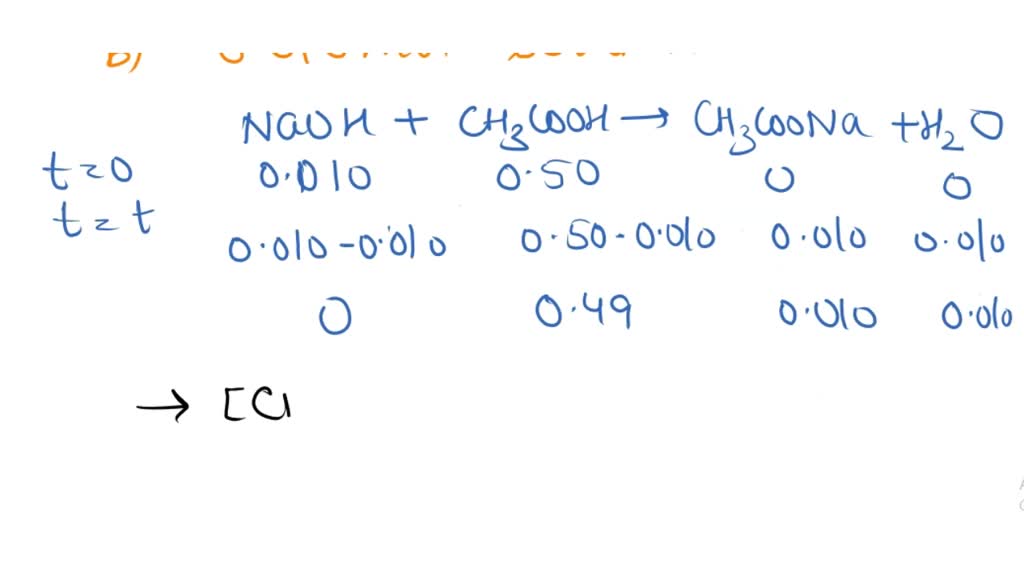 B)
NaOH + CH3COOH → CH3COONa + H2O
t=0 0.010 0.50 0 0
t=t
0.010-0.010 0.50-0.010 0.010 0.010
0 0.49 0.010 0.010
→ [CI